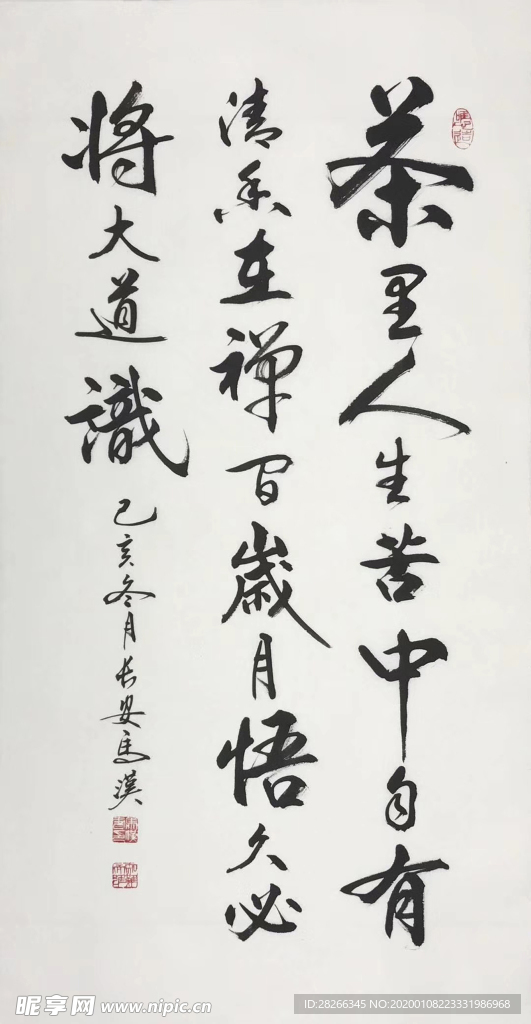 茶里人生苦中自有
清香在禅間歲月悟久必
将大道識
己亥冬月长安馬漢
昵享网 www.nipic.cn
ID:28266345 NO:20200108223331986968